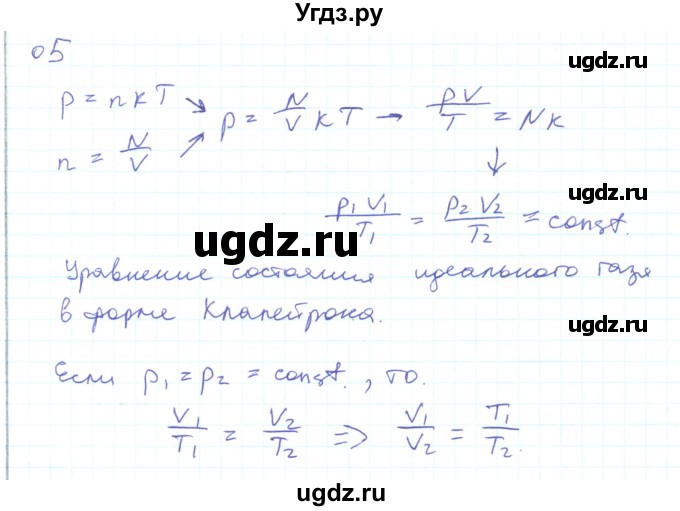 Угдз.ру
05
ugdz.ru
p = nkT
n = N/V
p = N/V kT → pV/T = Nk
ugdz.ru
p₁V₁/T₁ = p₂V₂/T₂ = const.
ugdz.ru
ugdz.ru
Уравнение состояния идеального газа
в форме Клапейрона.
ugdz.ru
Если p₁ = p₂ = const., то.
V₁/T₁ = V₂/T₂ => V₁/V₂ = T₁/T₂.
ugdz.ru
ugdz.ru